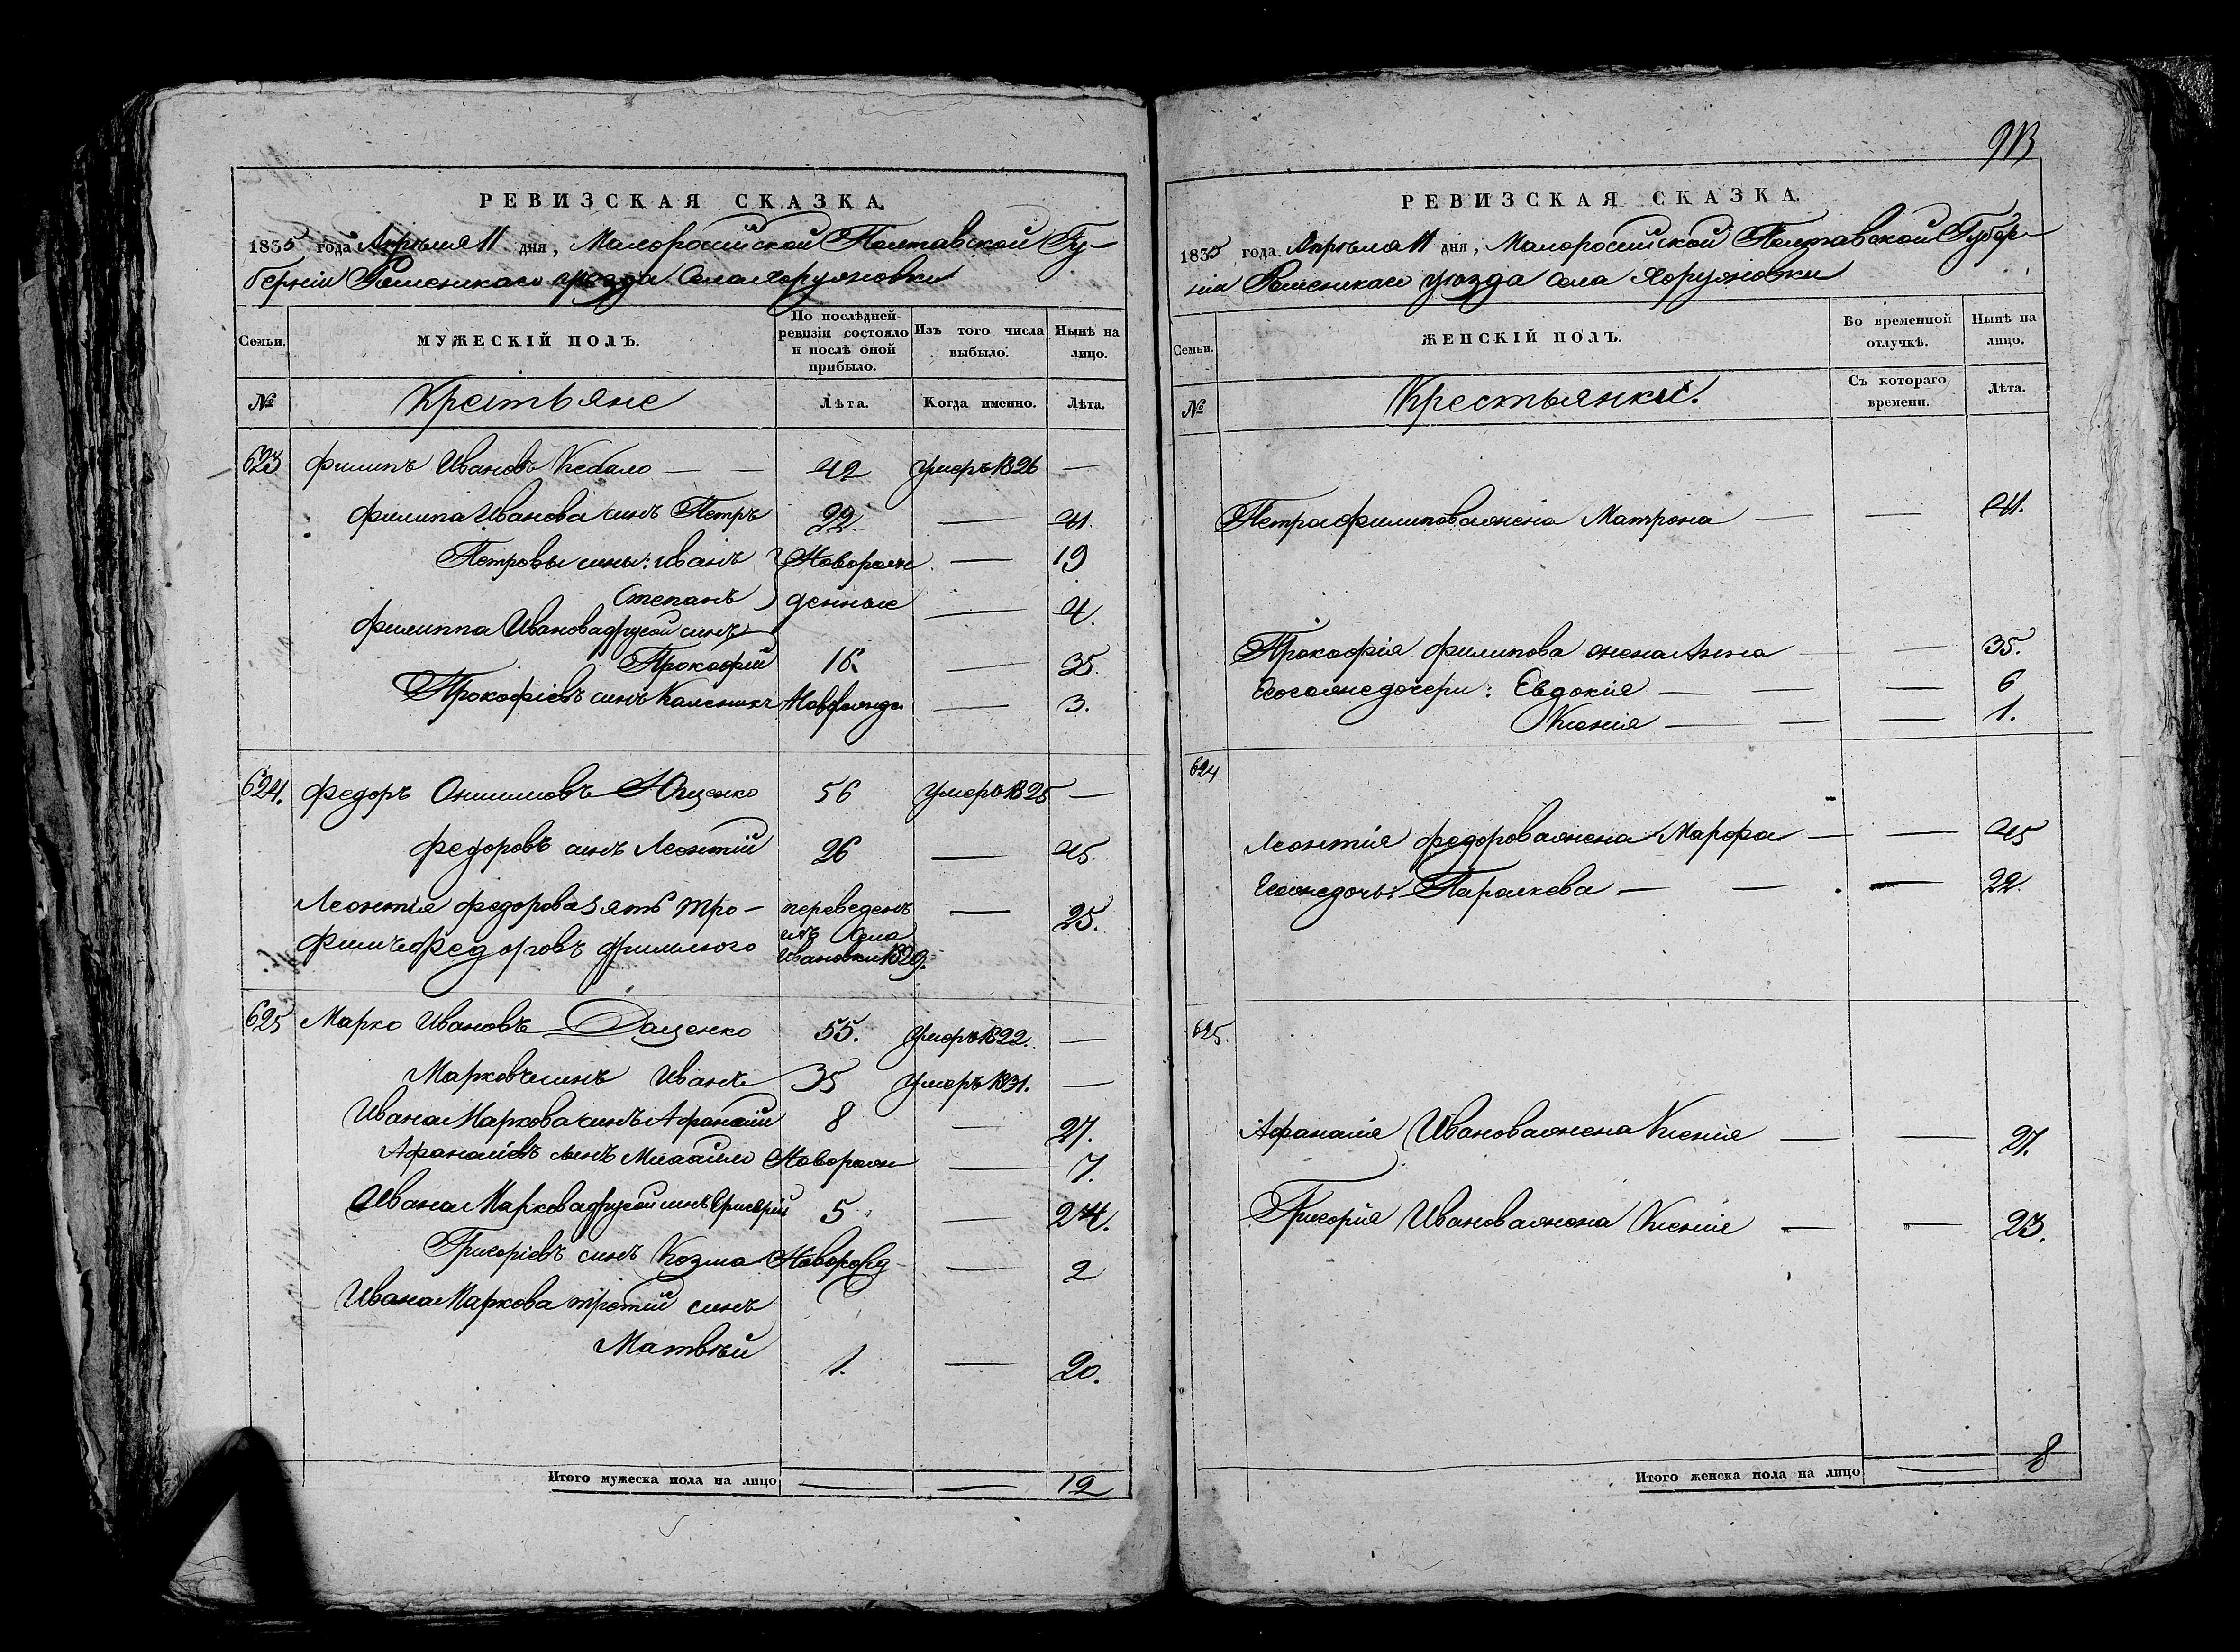 РЕВИЗСКАЯ СКАЗКА.
1835 года Апреля 11 дня, Малороссійской Полтавской Гу-
берніи Роменскаго уѣзда Села Хоружовки
Семьи.
МУЖЕСКІЙ ПОЛЪ.
По послѣдней ревизіи состояло и послѣ оной прибыло.
Изъ того числа выбыло.
Нынѣ на лицо.
№
Крестьяне
Лѣта.
Когда именно.
Лѣта.
623 Филипъ Ивановъ Кебало — — 42 умеръ 1826 —
Филипа Иванова сынъ Петръ 22 — 41.
Петровы сины: Иванъ Новорож — 19
Степанъ денные — 4.
Филиппа Иванова другой синъ
Прокофій 16 — 35.
Прокофіевъ синъ Каленикъ Новорожде — 3.
624. Федоръ Онисимовъ Ющенко 56 умеръ 1825 —
Федоровъ синъ Леонтій 26 — 45.
Леонтія Федорова зять Тро- переведенъ — 25.
фимъ Федоровъ изъ Села
Ивановки 1829.
625 Марко Ивановъ Даценко 55. умеръ 1822. —
Марковъ синъ Иванъ 35 умеръ 1831. —
Ивана Маркова синъ Афанасій 8 — 27.
Афанасіевъ сынъ Михаило Новорож — 7.
Ивана Маркова другой синъ Григорій 5 — 24.
Григоріевъ синъ Козма Новорожд — 2
Ивана Маркова третій синъ
Матвѣй 1. — 20.
Итого мужеска пола на лицо — — 12
913
РЕВИЗСКАЯ СКАЗКА.
1835 года Апрѣля 11 дня, Малоросійской Полтавской Губер-
ніи Роменскаго уѣзда Села Хоружовки
Семьи.
ЖЕНСКІЙ ПОЛЪ.
Во временной отлучкѣ.
Нынѣ на лицо.
№
Крестьянки.
Съ котораго времени.
Лѣта.
Петра Филипова жена Матрона — — 41.
Прокофія Филипова жена Анна — — 35.
Его же дочери: Евдокія — — — 6
Ксенія — — — 1.
624
Леонтія Федорова жена Марфа — — 45
Его же дочь: Параскева — — — 22.
625.
Афанасія Иванова жена Ксенія — — 27.
Григорія Иванова жена Ксенія — — 23.
Итого женска пола на лицо — 8